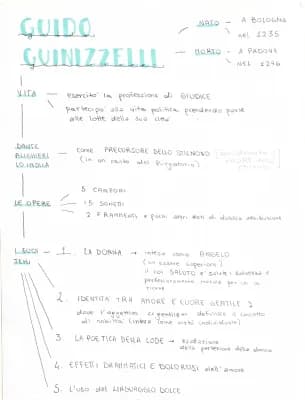 GUIDO
GUINIZZELLI
NATO → A BOLOGNA
NEL 1235
MORTO → A PADOVA
NEL 1276
VITA → esercitò la professione di GIUDICE
partecipò alla vita politica prendendo parte
alle lotte della sua città
DANTE
ALIGHIERI
LO INDICA → come PRECURSORE DELLO STILNOVO
(in un canto del Purgatorio)
LE OPERE → 5 CANZONI
15 SONETTI
2 FRAMMENTI e pochi altri testi di dubbia attribuzione
I SUOI
TEMI → 1. LA DONNA → intesa come ANGELO
(un essere superiore)
il cui SALUTO e'
perfezionamento morale per
2. IDENTITÀ TRA AMORE E CUORE GENTILE
dove l'aggettivo "gentile" definisce il concetto
di nobiltà (intesa come virtù individuale)
3. LA POETICA DELLA LODE → esaltazione
della perfezione della donna
4. EFFETTI DRAMMATICI E DOLOROSI dell'amore
5. L'uso del LINGUAGGIO DOLCE